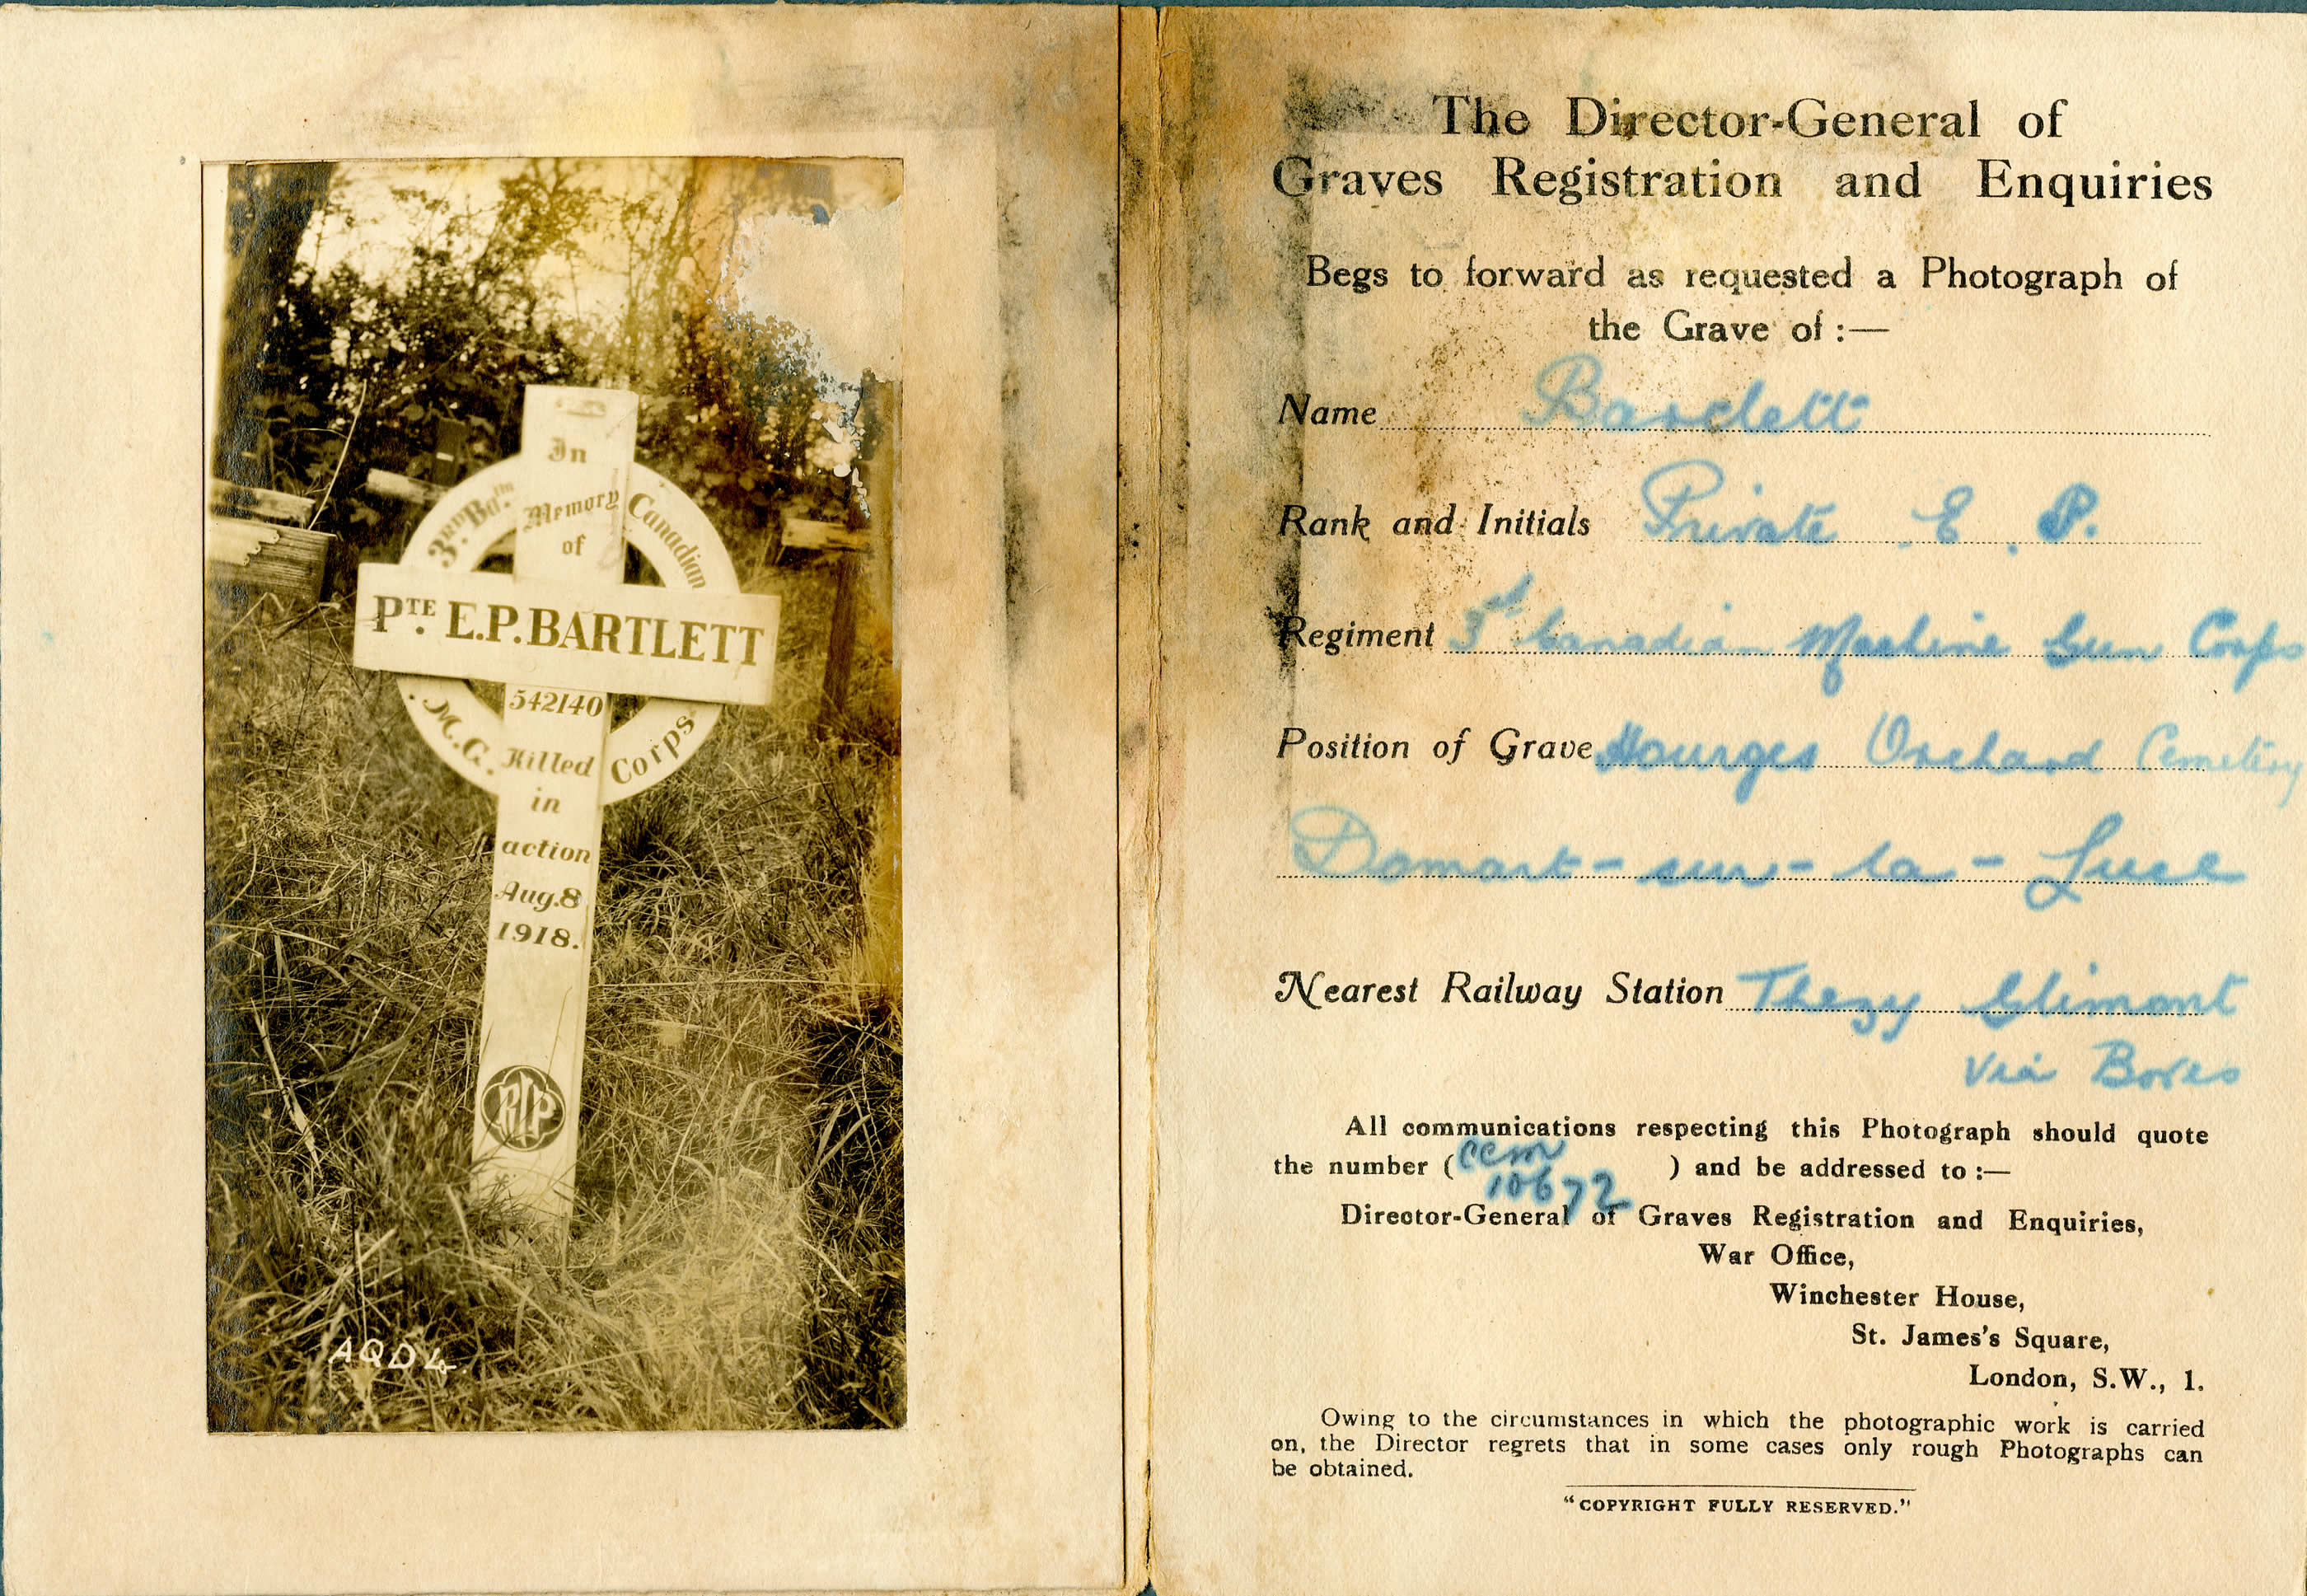 In
Memory
of
3RD Battn Canadian
PTE. E.P. BARTLETT
542140
M.G. Corps
Killed
in
action
Aug. 8
1918.
RIP
AQD 4
The Director-General of
Graves Registration and Enquiries
Begs to forward as requested a Photograph of
the Grave of :—
Name Bartlett
Rank and Initials Private E. P.
Regiment 3rd Canadian Machine Gun Corps
Position of Grave Hourges Orchard Cemetery
Domart-sur-la-Luce
Nearest Railway Station Thezy Glimont
via Boves
All communications respecting this Photograph should quote
the number (CCM 10672) and be addressed to :—
Director-General of Graves Registration and Enquiries,
War Office,
Winchester House,
St. James's Square,
London, S.W., 1.
Owing to the circumstances in which the photographic work is carried
on, the Director regrets that in some cases only rough Photographs can
be obtained.
"COPYRIGHT FULLY RESERVED."